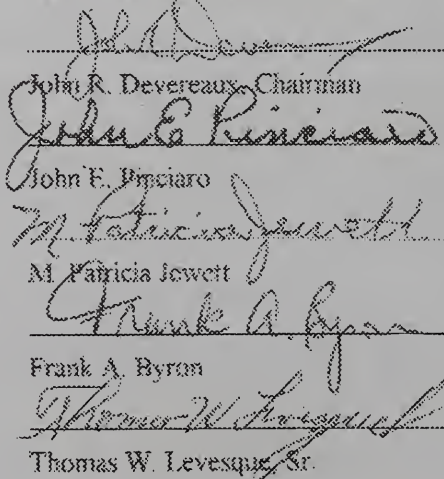 John R. Devereaux, Chairman
John E Pinciaro
John E. Pinciaro
M. Patricia Jewett
M. Patricia Jewett
Frank A. Byron
Frank A. Byron
Thomas W. Levesque
Thomas W. Levesque, Sr.